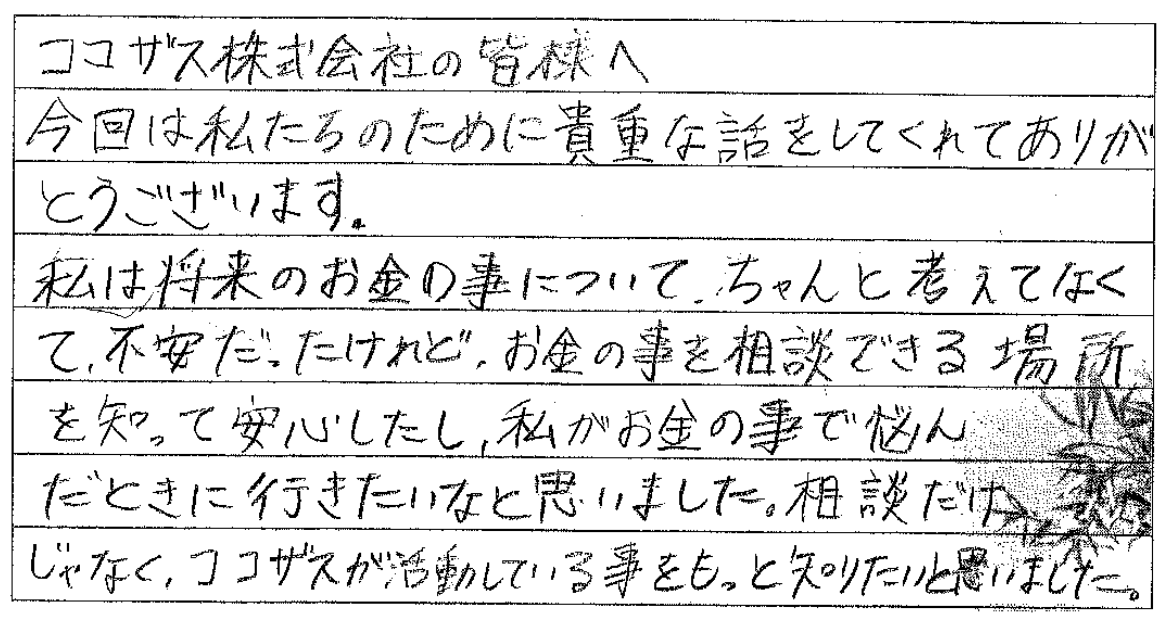 ココザス株式会社の皆様へ
今回は私たちのために貴重な話をしてくれてありが
とうございます。
私は将来のお金の事について、ちゃんと考えてなく
て、不安だったけれど、お金の事を相談できる場所
を知って安心したし、私がお金の事で悩ん
だときに行きたいなと思いました。相談だけ
じゃなく、ココザスが活動している事をもっと知りたいと思いました。